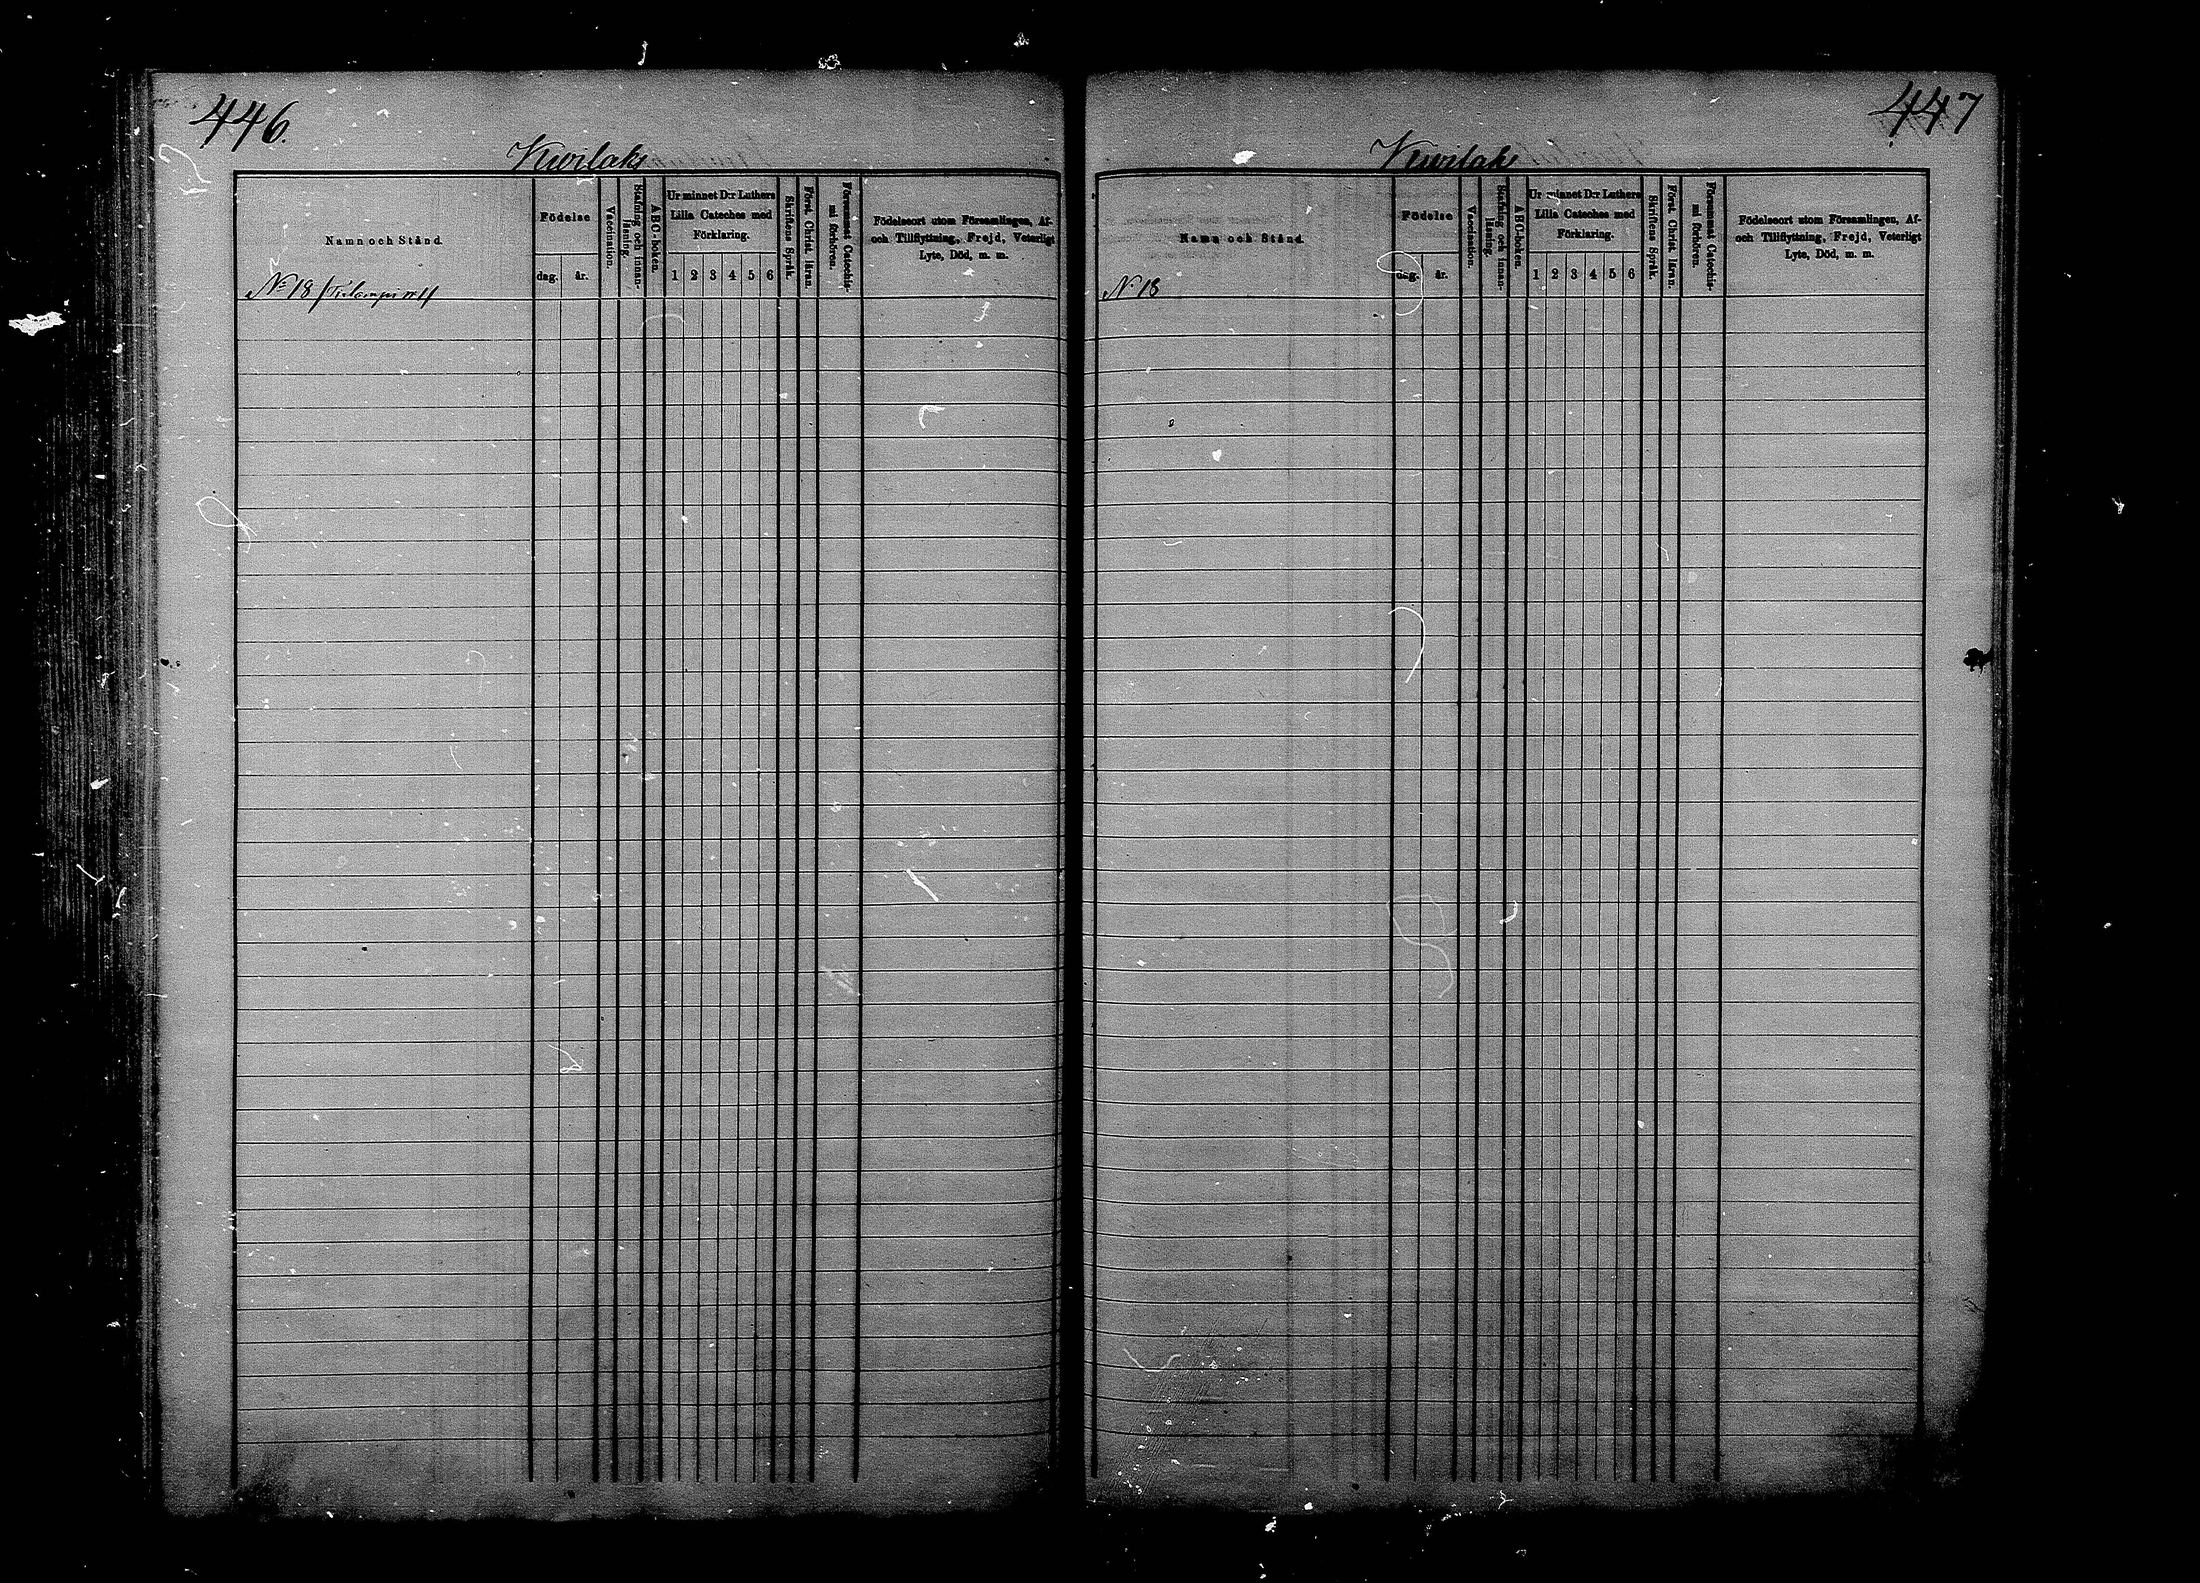 446.
Kuvilaks
Namn och Stånd.
Födelse
dag.
år.
Vaccination.
Stafning och innan-
läsning.
ABC-boken.
Ur minnet D:r Luthers
Lilla Cateches med
Förklaring.
1 2 3 4 5 6
Skriftens Språk.
Först. Christ. läran.
Försummat Catechis-
mi förhören.
Födelseort utom Församlingen, Af-
och Tillflyttning, Frejd, Veterligt
Lyte, Död, m. m.
No 18
447
Kuvilaks
Namn och Stånd.
Födelse
dag.
år.
Vaccination.
Stafning och innan-
läsning.
ABC-boken.
Ur minnet D:r Luthers
Lilla Cateches med
Förklaring.
1 2 3 4 5 6
Skriftens Språk.
Först. Christ. läran.
Försummat Catechis-
mi förhören.
Födelseort utom Församlingen, Af-
och Tillflyttning, Frejd, Veterligt
Lyte, Död, m. m.
No 18